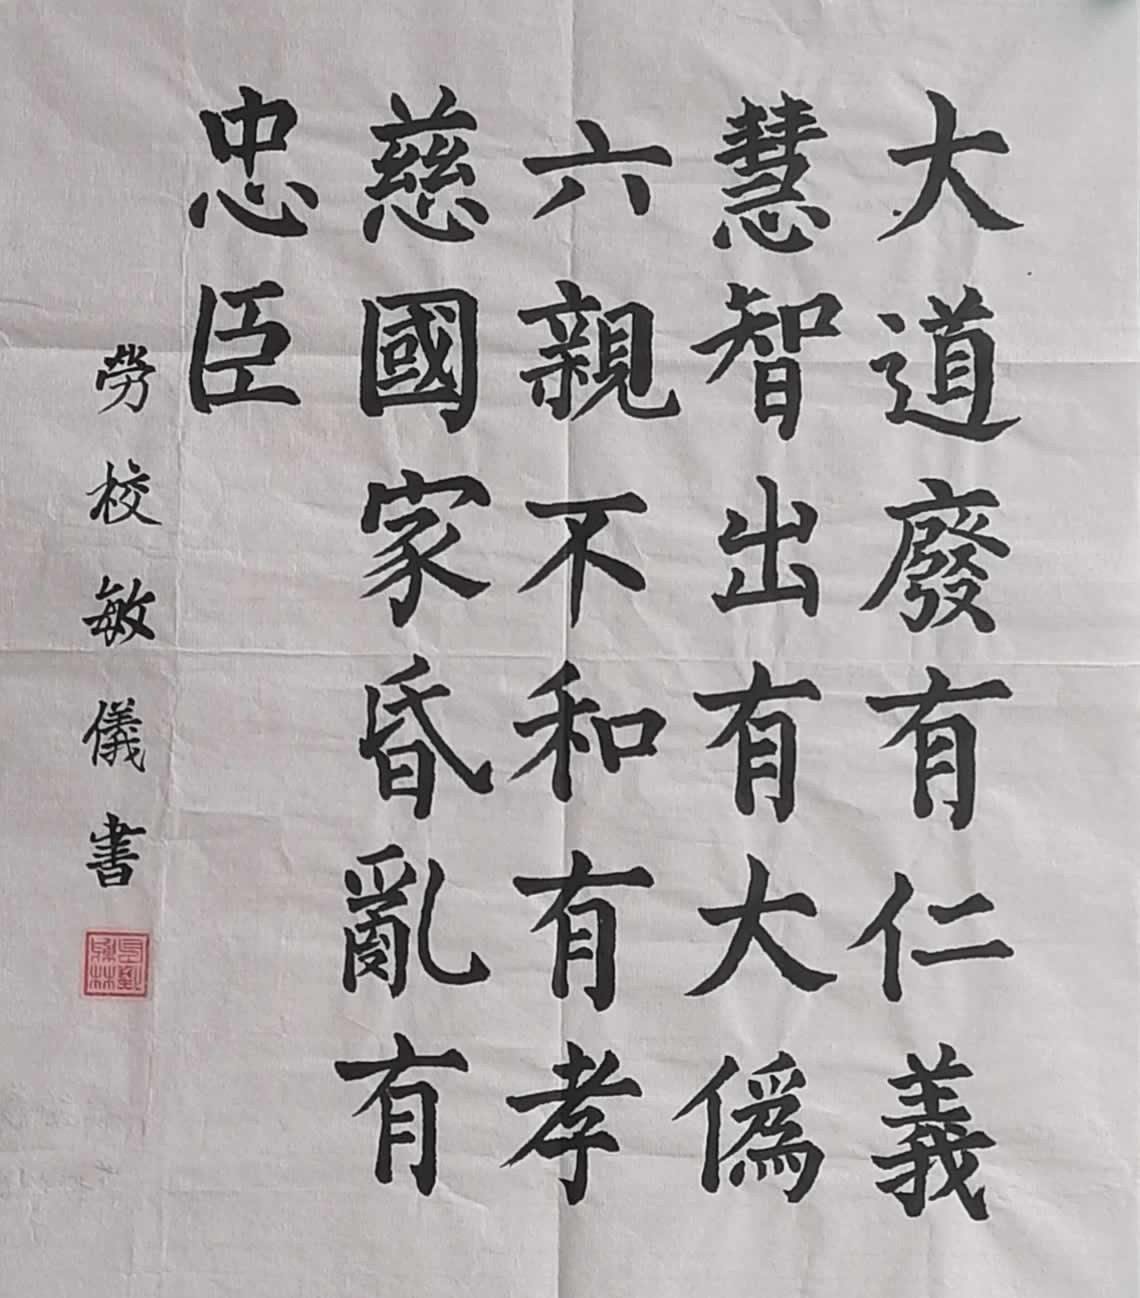 大道廢有仁義
慧智出有大偽
六親不和有孝
慈國家昏亂有
忠臣
勞校敏儀書